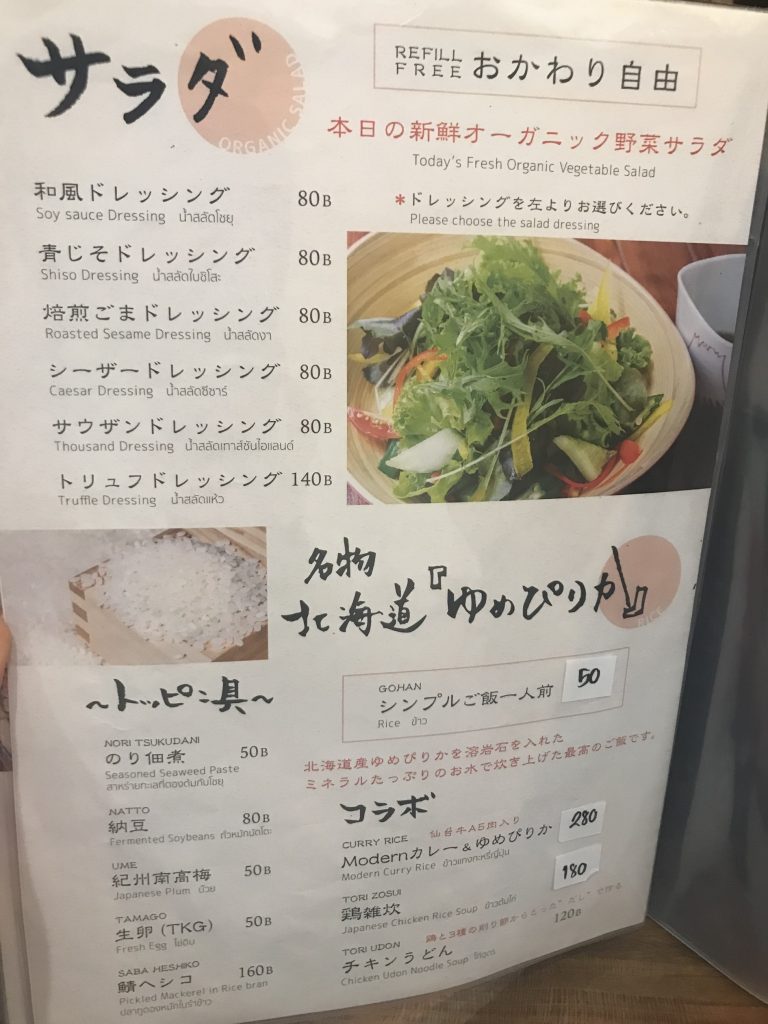 サラダ
ORGANIC SALAD
REFILL FREE おかわり自由
本日の新鮮オーガニック野菜サラダ
Today's Fresh Organic Vegetable Salad
*ドレッシングを左よりお選びください。
Please choose the salad dressing
和風ドレッシング 80B
Soy sauce Dressing น้ำสลัดโชยุ
青じそドレッシング 80B
Shiso Dressing น้ำสลัดใบชิโสะ
焙煎ごまドレッシング 80B
Roasted Sesame Dressing น้ำสลัดงา
シーザードレッシング 80B
Caesar Dressing น้ำสลัดซีซาร์
サウザンドレッシング 80B
Thousand Dressing น้ำสลัดเทาส์ซันไอแลนด์
トリュフドレッシング 140B
Truffle Dressing น้ำสลัดแห้ว
名物
北海道『ゆめぴりか』
RICE
GOHAN
シンプルご飯一人前 50
Rice ข้าว
北海道産ゆめぴりかを溶岩石を入れた
ミネラルたっぷりのお水で炊き上げた最高のご飯です。
〜トッピン具〜
NORI TSUKUDANI
のり佃煮 50B
Seasoned Seaweed Paste
สาหร่ายทะเลที่ต้มกับโชยุ
NATTO
納豆 80B
Fermented Soybeans ถั่วหมักนัตโตะ
UME
紀州南高梅 50B
Japanese Plum บ๊วย
TAMAGO
生卵 (TKG) 50B
Fresh Egg ไข่ดิบ
SABA HESHIKO
鯖ヘシコ 160B
Pickled Mackerel in Rice bran
ปลาทูดองหมักในรำข้าว
コラボ
CURRY RICE 仙台牛A5肉入り
Modernカレー&ゆめぴりか 280
Modern Curry Rice ข้าวแกงกะหรี่ญี่ปุ่น
TORI ZOSUI
鶏雑炊 180
Japanese Chicken Rice Soup ข้าวต้มไก่
TORI UDON 鶏と3種の削り節からとった"だし"で作る
チキンうどん 120B
Chicken Udon Noodle Soup